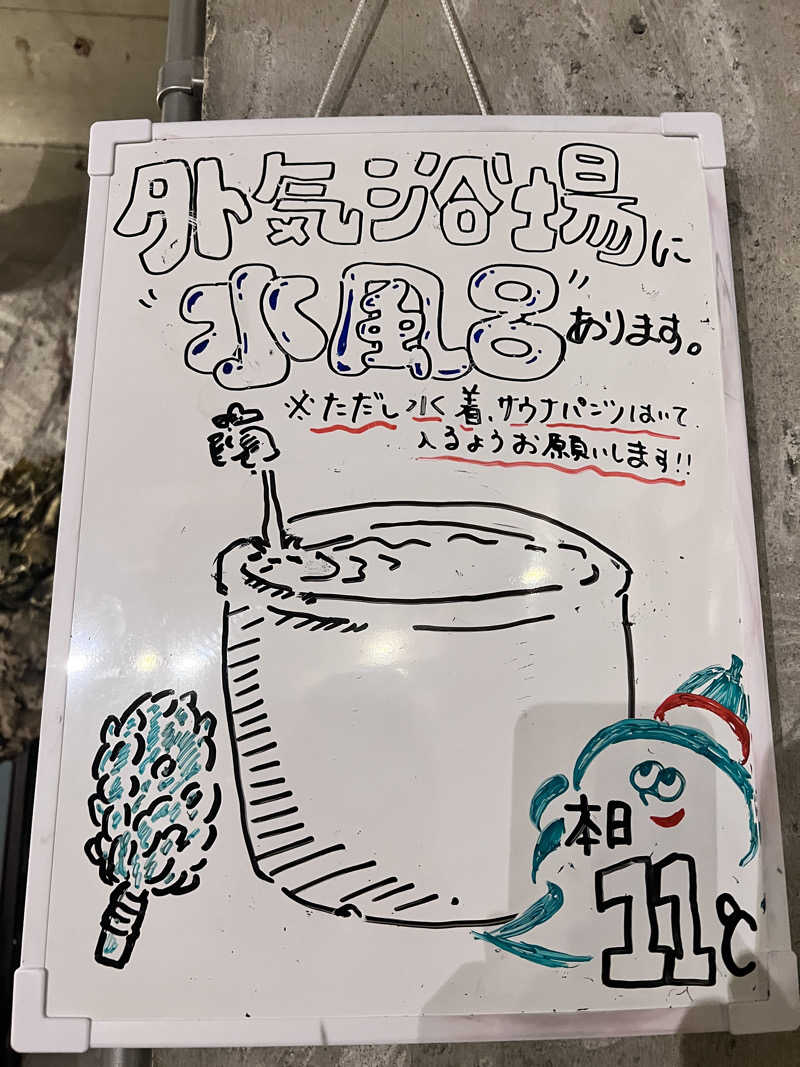 外気浴場に
"水風呂"あります。
※ただし水着、サウナパンツはいて
入るようお願いします!!
本日
11℃